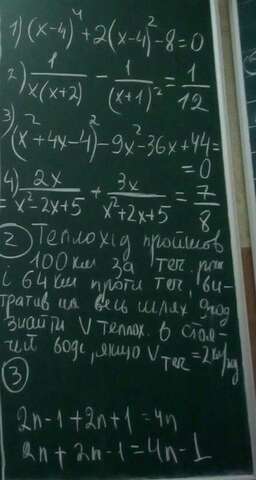 1) (x-4)⁴+2(x-4)²-8=0
2) 1/(x(x+2)) - 1/(x+1)² = 1/12
3) (x²+4x-4)²-9x²-36x+44=
=0
4) 2x/(x²-2x+5) + 3x/(x²+2x+5) = 7/8
② Теплохід пройшов
100 км за теч. річк
і 64 км проти теч, ви-
тратив на весь шлях 9 год
знайти V теплох. в стоя-
чій воді, якщо Vтеч=2км/год
③
2n-1+2n+1=4n
2n+2n-1=4n-1